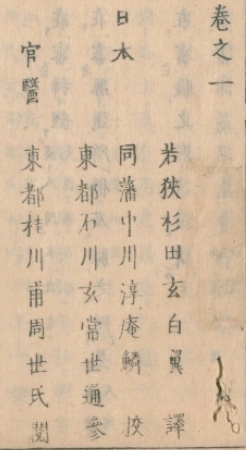 卷之一
日本
若狹杉田玄白翼 譯
同藩中川淳庵鱗 挍
東都石川玄常世通參
官醫 東都桂川甫周世民閱